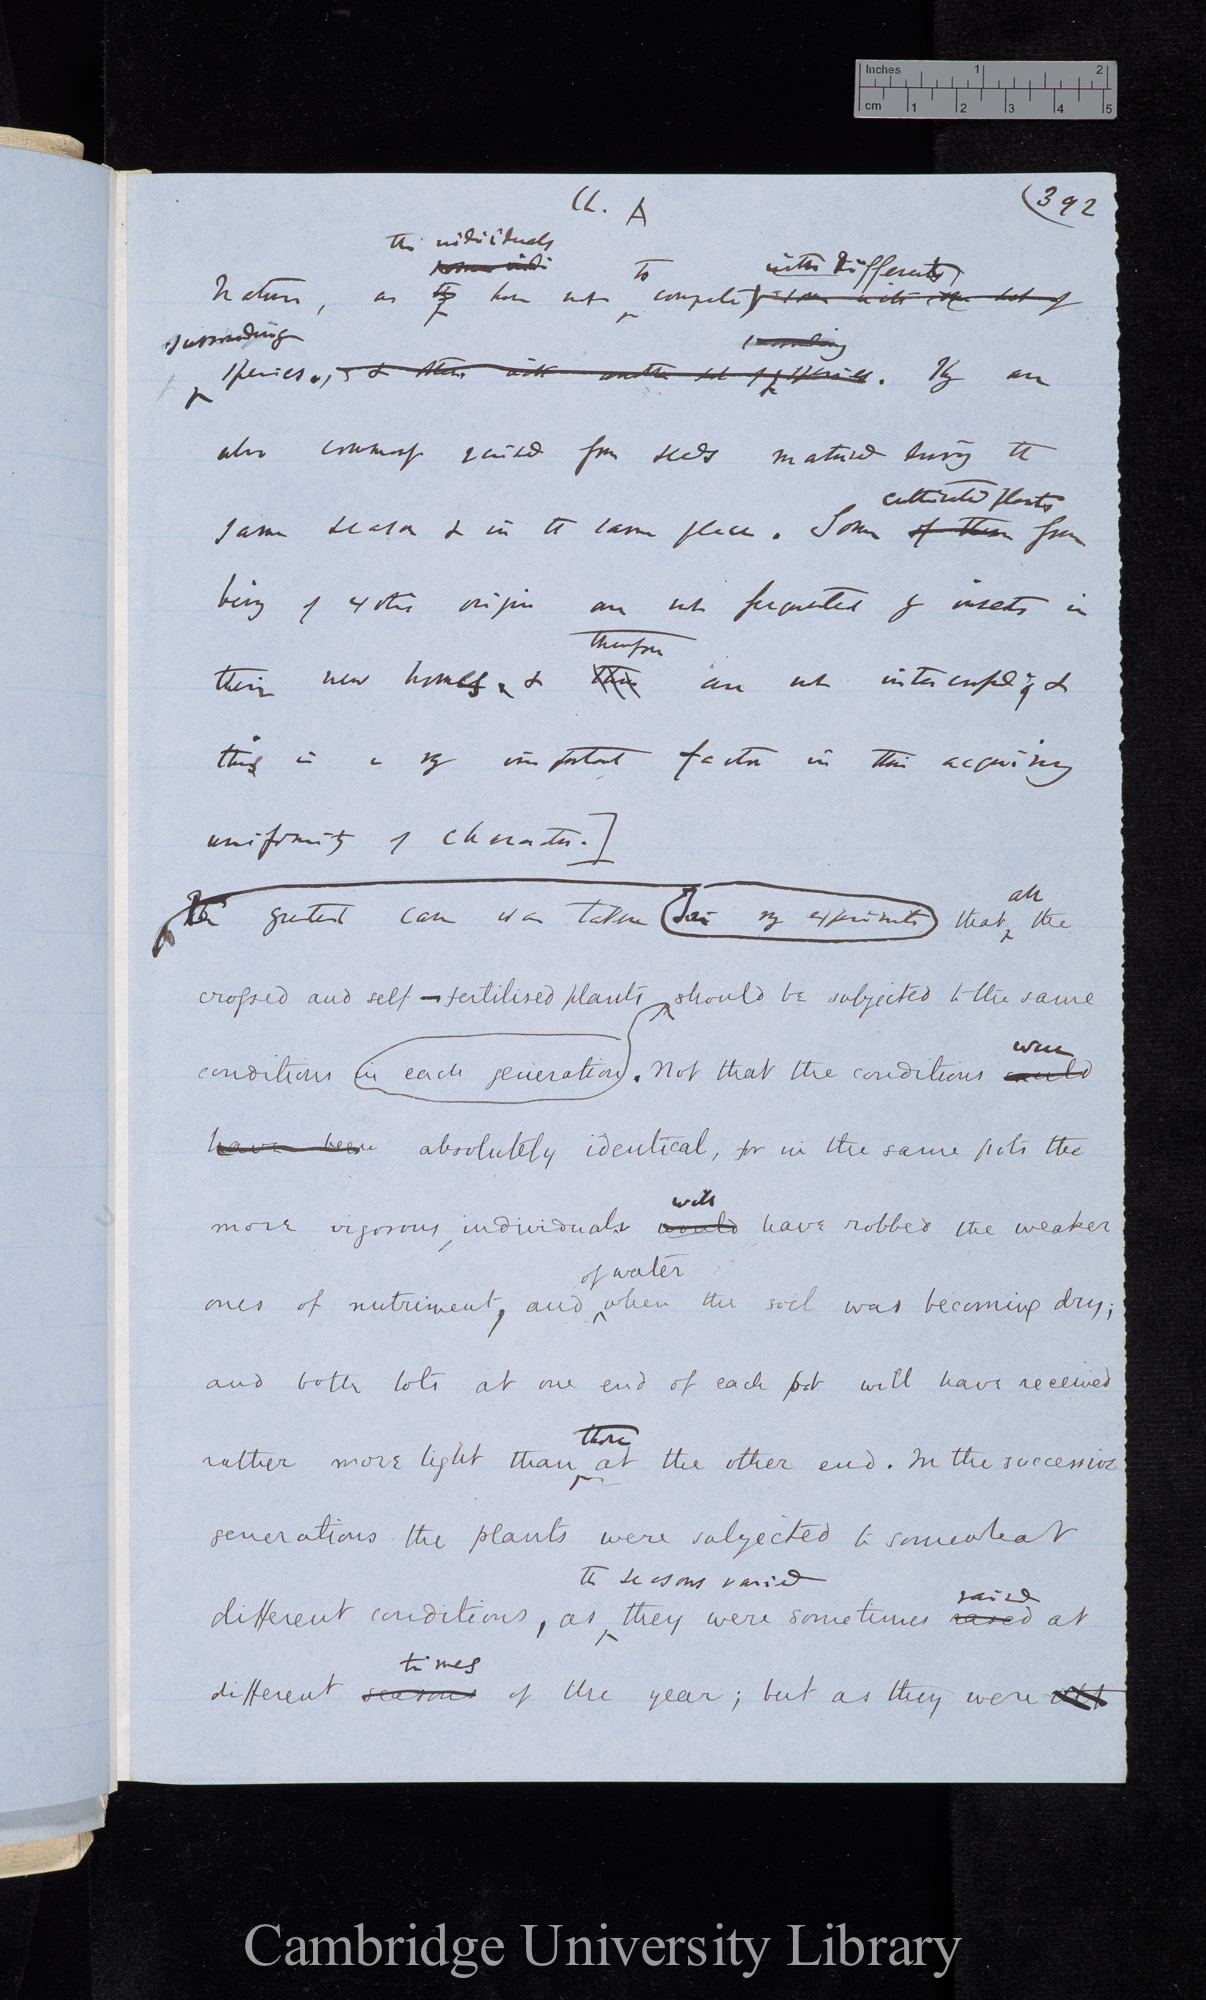 Inches 1 2
cm 1 2 3 4 5
Ch. A
(392
the individuals
to
with different
Nature, as they have not compete
surrounding
species. They are
also commonly raised from seeds matured during the
cultivated plants
same season & in the same place. Some of them from
being of exotic origin are not frequented by insects in
therefore
their new homes, & this are not intercrossed; &
this is a very important factor in their acquiring
uniformity of character.]
The greatest care was taken in my experiments that all the
crossed and self-fertilised plants should be subjected to the same
were
conditions in each generation. Not that the conditions could
have been absolutely identical, for in the same pots the
will
more vigorous individuals would have robbed the weaker
of water
ones of nutriment, and when the soil was becoming dry;
and both lots at one end of each pot will have received
those
rather more light than at the other end. In the successive
generations the plants were subjected to somewhat
the seasons varied
raised
different conditions, as they were sometimes raised at
times
different seasons of the year; but as they were
Cambridge University Library